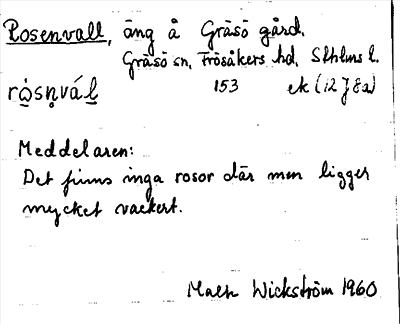 Rosenvall, äng å Gräsö gård.
Gräsö sn, Frösåkers hd, Sthlms l.
rósṇvál 153 ek (12 J 8a)
Meddelaren:
Det finns inga rosor där men ligger
mycket vackert.
Wickström 1960